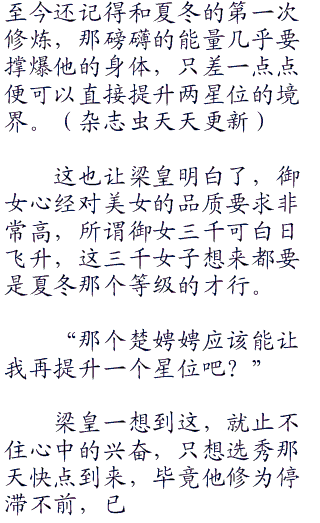 至今还记得和夏冬的第一次
修炼，那磅礴的能量几乎要
撑爆他的身体，只差一点点
便可以直接提升两星位的境
界。（杂志虫天天更新）
这也让梁皇明白了，御
女心经对美女的品质要求非
常高，所谓御女三千可白日
飞升，这三千女子想来都要
是夏冬那个等级的才行。
“那个楚娉娉应该能让
我再提升一个星位吧？”
梁皇一想到这，就止不
住心中的兴奋，只想选秀那
天快点到来，毕竟他修为停
滞不前，已